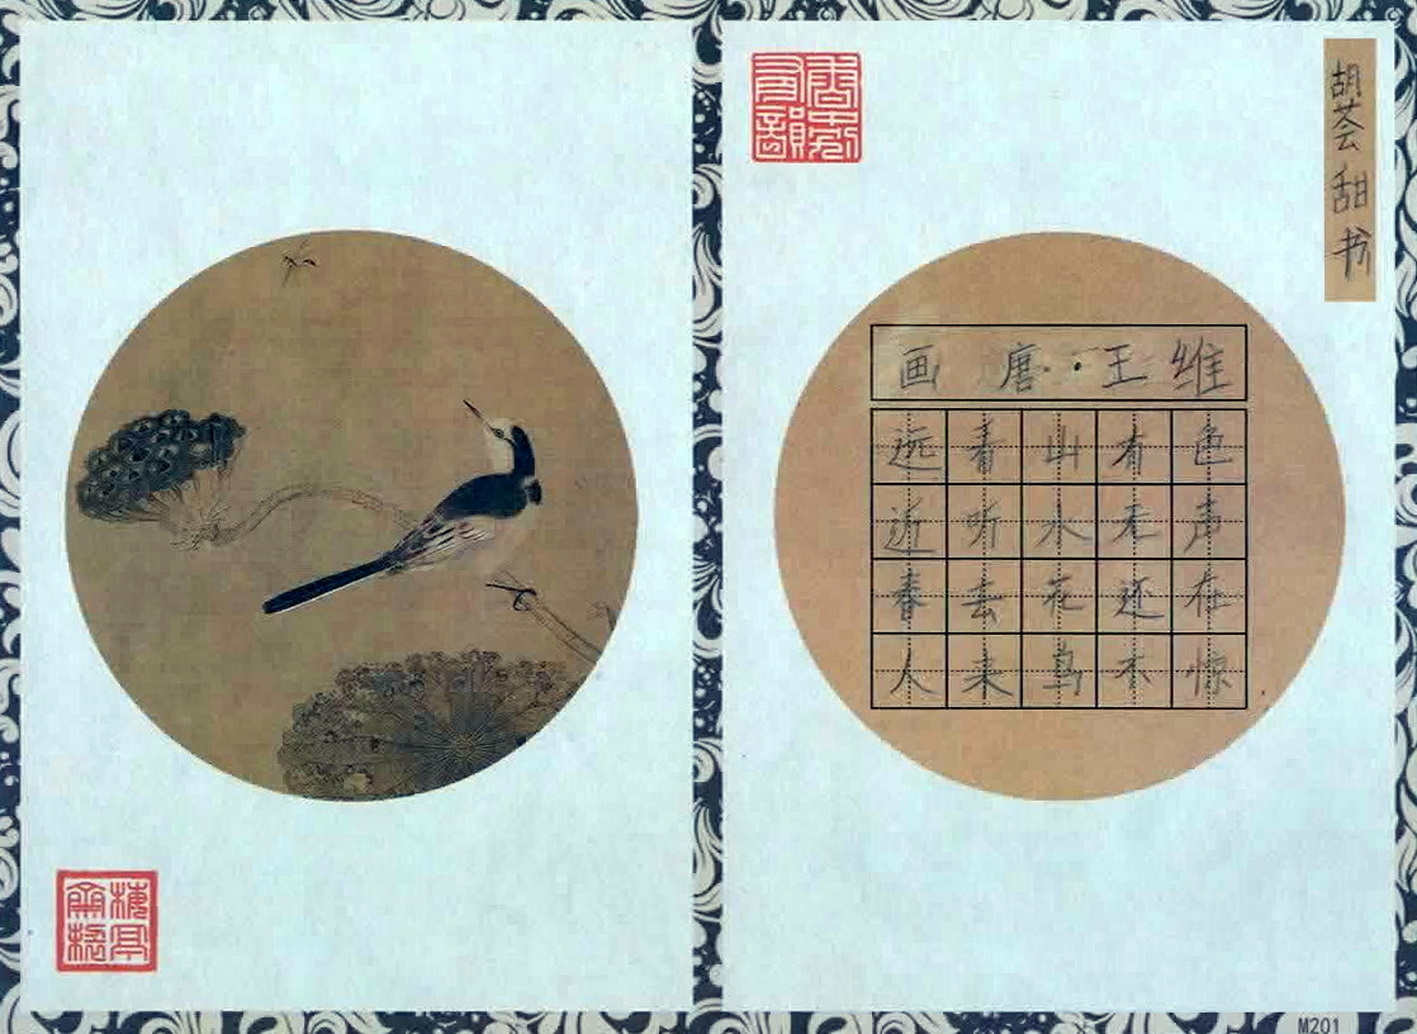 胡荟甜书
画 唐·王维
远看山有色
近听水无声
春去花还在
人来鸟不惊
M201